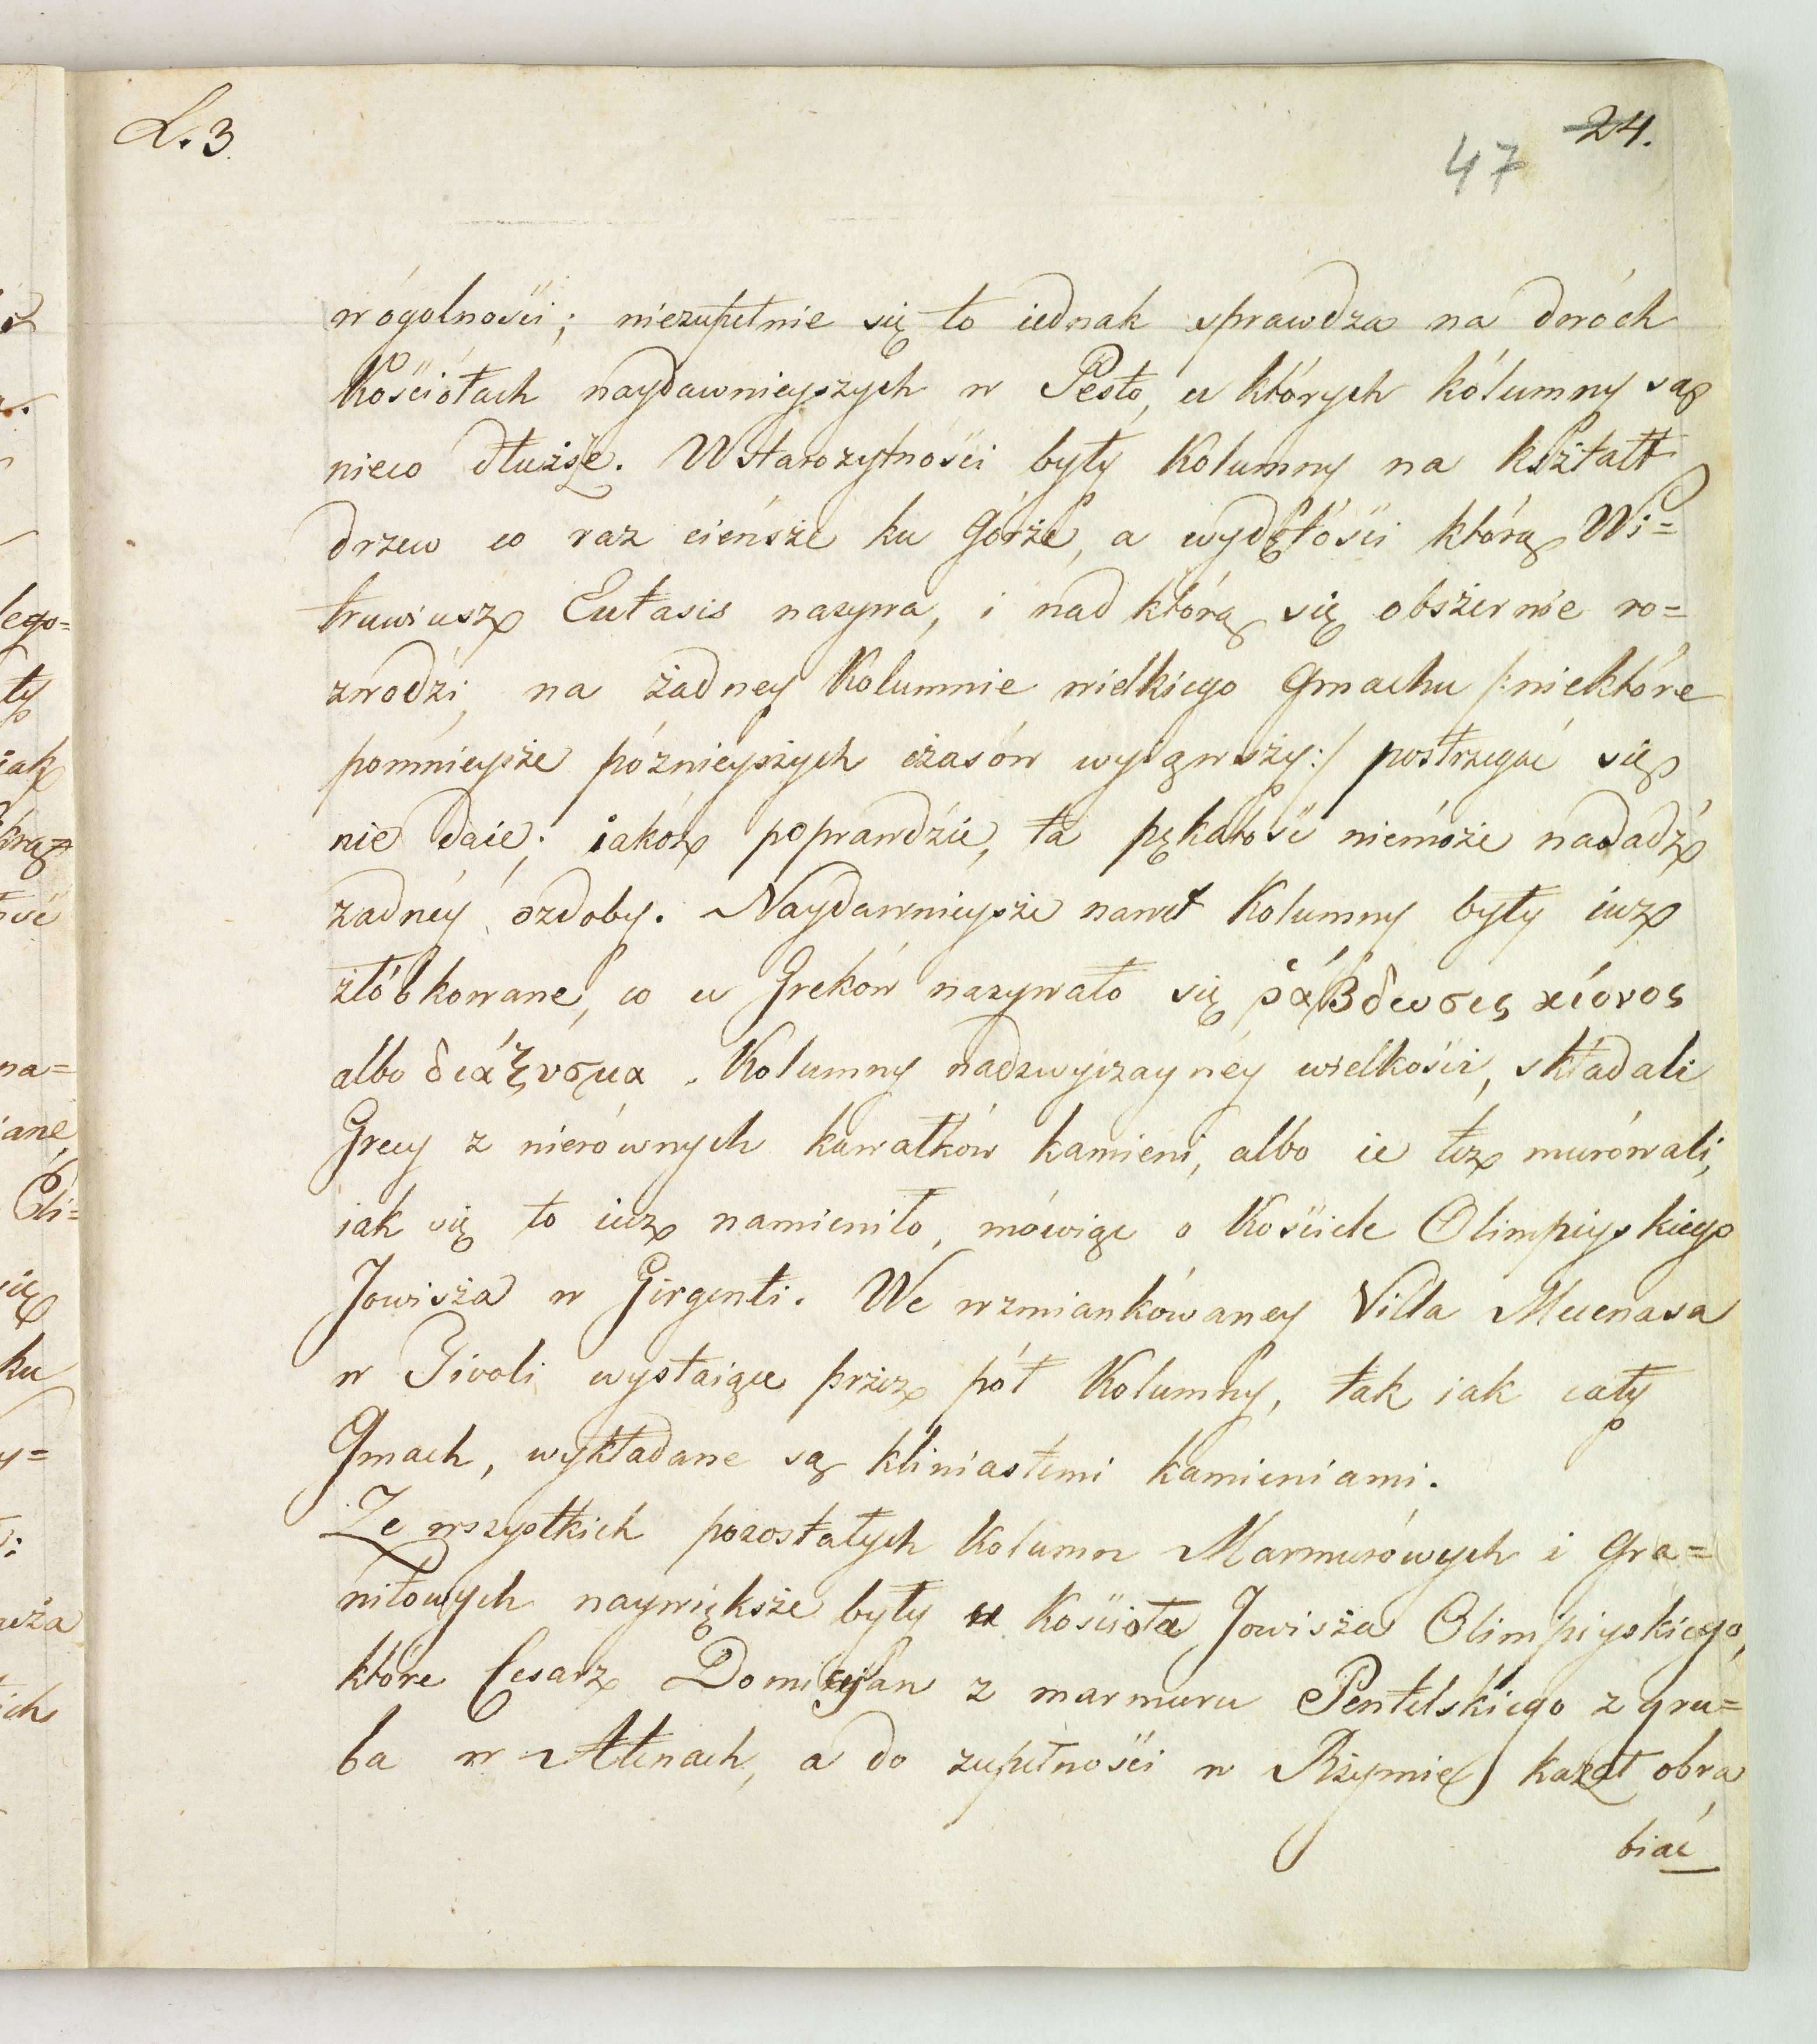 L. 3.
24.
47
wógólnośći; niezupełnie się to iednak sprawdza na dwóch
Kośćiółach naydawnieyszych w Pesto, u których kólumny są
nieco dłuższe. W Starożytnośći były Kolumny na kształt
drzew co raz cieńsze ku Górze, a wydętośći którą Wi=
truwiusz Eutasis nazywa, i nad którą się obszernie ro=
zwodzi, na żadney Kolumnie wielkiego Gmachu /:niektóre
pomnieysze póznieyszych czasów wyiąwszy:/ postrzegać się
nie daie; iakóż poprawdzie, ta pękatość niemoże nadadź
zadnéy ozdoby. Naydawnieysze nawet Kolumny były iuz
złóbkowane, co u Greków nazywało się ῥάβδωσις κίονος
albo διάξυσμα. Kolumny nadzwyczaynéy wielkośći, składali
Grecy z nierównych kawałków kamieni, albo ie też murówali,
iak się to iuz namieniło, mówiąc o Kośćiele Olimpiyskiego
Jowisza w Girgenti. We wzmiankówaney Villa Mecenasa
w Tivoli wystaiące przez pół Kolumny, tak iak cały
Gmach, wykładane są kliniastemi kamieniami.
Ze wszystkich pozostałych Kolumn Marmurówych i Gra=
nitowych naywiększe były u Kośćioła Jowisza Olimpiyskiego,
które Cesarz Domicyan z marmuru Pentelskiego z gru=
ba w Atenach, a do zupełnośći w Rzymie kazał obra
biać